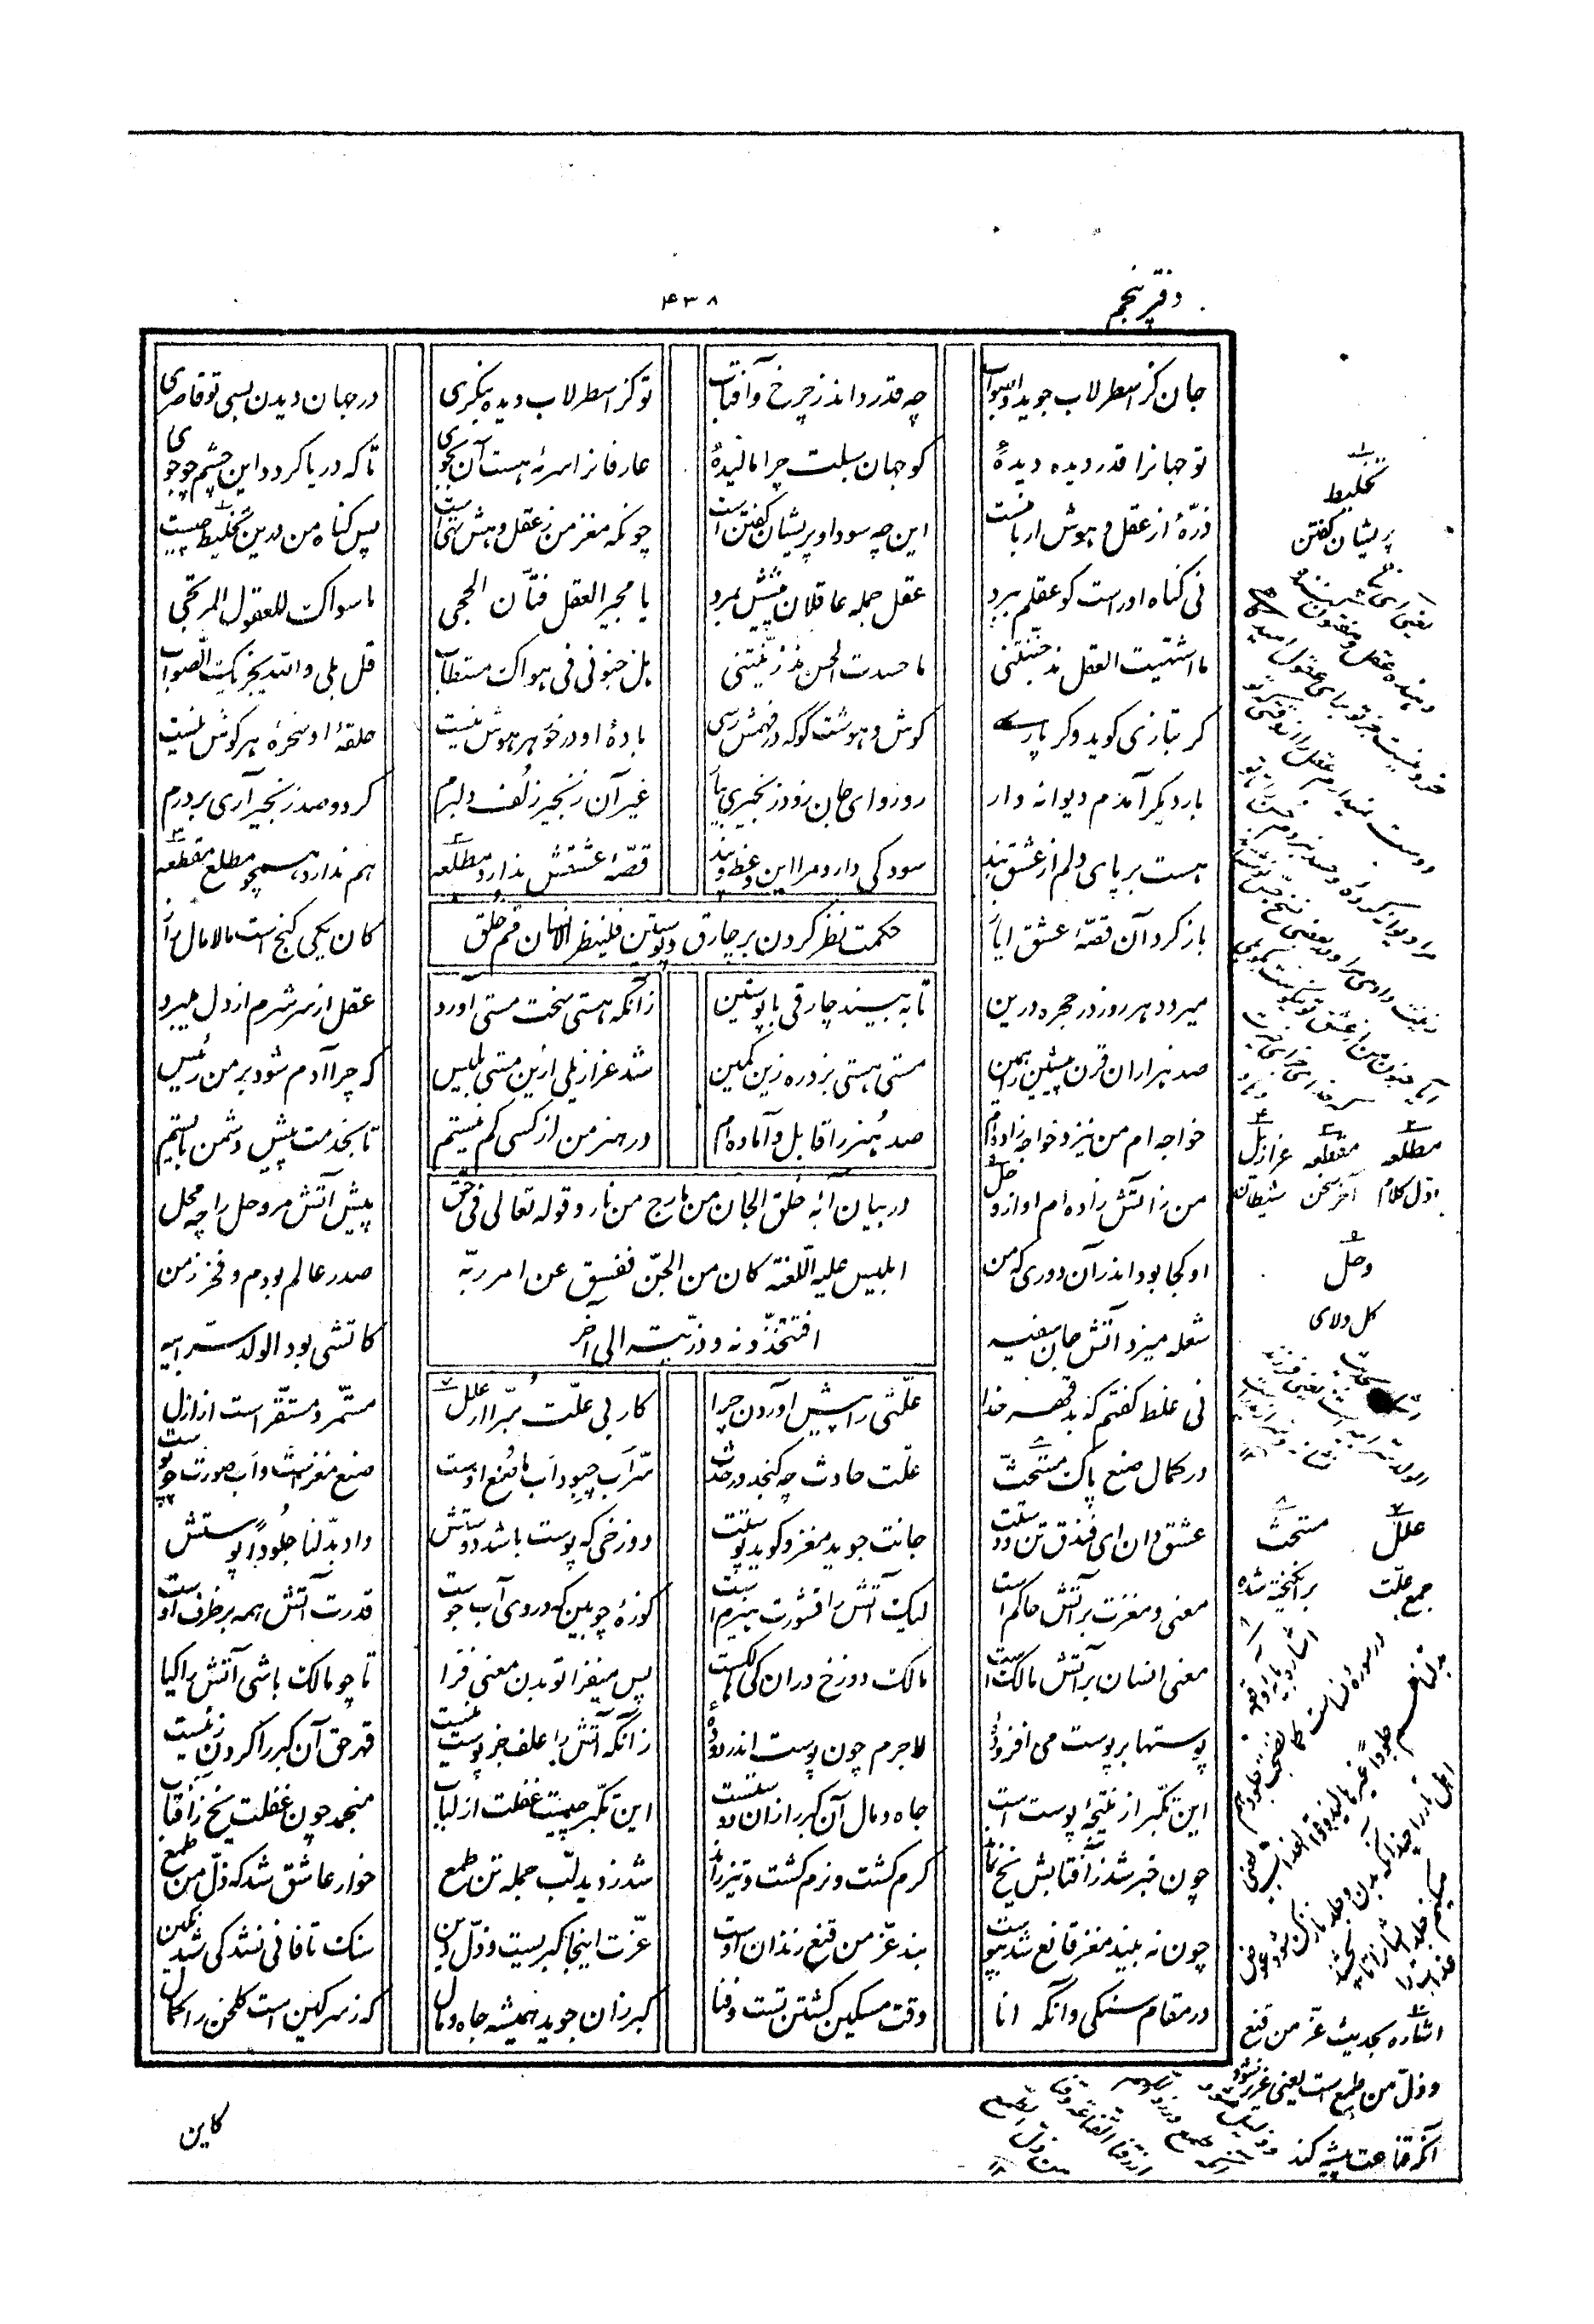 دفتر پنجم
۴۳۸
جان کز اسطرلاب جوید او صواب چه قدر داند ز چرخ و آفتاب تو کز اسطرلاب دیده بنگری در جهان دیدن بسی تو قاصری
تو جهانرا قدر دیده دیدهٔ کو جهان سبلت چرا مالیدهٔ عارفانرا سرمهٔ هست آن بجوی تا که دریا کردد این چشم چو جوی
ذرّهٔ از عقل و هوش ار با منست این چه سودا و پریشان گفتن است چونکه مغز من ز عقل و هش تهی است پس کناه من درین تخلیط چیست
نی کناه اوراست کو عقلم ببرد عقل جمله عاقلان پیشش بمرد یا مجیر العقل فتّان الحجی ما سواک للعقول المرتجی
ما اشتهیت العقل مذ جنّنتنی ما حسدت الحسن مذ زیّنتنی بل جنونی فی هواک مستطاب قل بلی والله یجزیک الصواب
کر بتازی کوید و کر پارسی کوش و هوشت کو که در فهمش رسی بادهٔ او در خور هر هوش نیست حلقهٔ او سخرهٔ هر کوش نیست
بار دیکر آمدم دیوانه وار رو رو ای جان زود زنجیری بیار غیر آن زنجیر زلف دلبرم کر دو صد زنجیر آری بردرم
هست بر پای دلم از عشق بند سود کی دارد مرا این وعظ و پند قصّهٔ عشقش ندارد مطلعه هم ندارد همچو مطلع مقطعه
حکمت نظر کردن بر چارق و پوستین فلینظر الانسان مم خلق
باز کرد آن قصّهٔ عشق ایاز کان یکی کنج است مالامال راز
میرود هر روز در حجره درین تا به بیند چارقی با پوستین زانکه هستی سخت مستی آورد عقل از سر شرم از دل میبرد
صد هزاران قرن پیشین را همین مستی هستی بزد ره زین کمین شد عزازیلی ازین مستی بلیس که چرا آدم شود بر من رئیس
خواجه ام من نیز و خواجه زاده ام صد هنر را قابل و آماده ام در هنر من از کسی کم نیستم تا بخدمت پیش دشمن بایستم
در بیان آیهٔ خلق الجان من مارج من نار و قوله تعالی فی حق
ابلیس علیه اللّعنه کان من الجنّ ففسق عن امر ربّه
افتتخذونه و ذرّیته الی آخر
من ز آتش زاده ام او از وحل پیش آتش مر وحل را چه محل
او کجا بود اندر آن دوری که من صدر عالم بودم و فخر زمن
شعله میزد آتش جان سفیه کاتشی بود الولد سر ابیه
نی غلط کفتم که بد قهر خدا علّتی را پیش آوردن چرا کار بی علّت مبرّا از علل مستمّر و مستقّر است از ازل
در کمال صنع پاک مستحثّ علّت حادث چه کنجد در حدث سرّ اب چبود اب ما صنع اوست صنع مغز است و اب صورت چو پوست
عشق دان ای فندق تن دوستت جانت جوید مغز و کوبد پوستت دوزخی که پوست باشد دوستش داد بدّلنا جلودا پوستش
معنی و مغزت بر آتش حاکم است لیک آتش را قشورت هیزم است کوزهٔ چوبین که در وی آب جوست قدرت آتش همه بر ظرف اوست
معنی انسان بر آتش مالک است مالک دوزخ در ان کی هالکست پس میفزا تو بدن معنی فزا تا چو مالک باشی آتش را کیا
پوستها بر پوست می افزودهٔ لاجرم چون پوست اندر دودهٔ زانکه آتش را علف جز پوست نیست قهر حق آن کبر را کردن زنیست
این تکبّر از نتیجهٔ پوست است جاه و مال آن کبر را زان دوستست این تکبّر چیست غفلت از لباب منجمد چون غفلت یخ ز آفتاب
چون خبر شد ز آفتابش یخ نماند کرم کشت و نرم کشت و تیز راند شد ز دید لبّ جمله تن طمع خوار عاشق شد که ذلّ من طمع
چون نه بیند مغز قانع شد بپوست بند عزّ من قنع زندان اوست عزّت اینجا کبریست و ذلّ دین سنک تا فانی نشد کی شد نکین
در مقام سنکی وانکه انا وقت مسکین کشتن تست و فنا کبر زان جوید همیشه جاه و مال که ز سرکین است کلخن را کمال
تخلیط
پریشان کفتن
مطلعه مقطعه عزازیل
اوّل کلام آخر سخن شیطان
وحل
کل و لای
علل مستحث
جمع علّت برانکیخته شده
اشاره بحدیث عزّ من قنع
و ذلّ من طمع است یعنی عزیز شود
آنکه قناعت پیشه کند
کاین